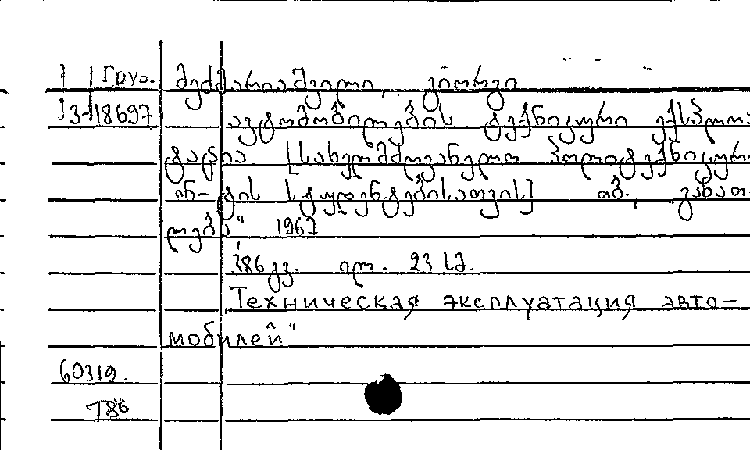 Груз. მექმარიაშვილი, გიორგი
3-18697 ავტომობილების ტექნიკური ექსპლოა
ტაცია [სახელმძღვანელო პოლიტექნიკური
ინ-ტის სტუდენტებისათვის] თბ., განათ
ლება" 1967
386 გვ. ილ. 23 სმ.
Техническая эксплуатация авто-
мобилей"
60319.
786